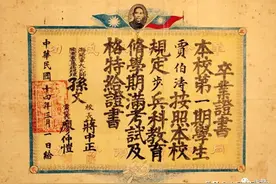 卒業證書
本校第一期學生
賈伯濤按照本校
規定步兵科教育
修學期滿考試及
格特給證書
海陸軍大元帥
陸軍軍官學校總理
孫文
校長 蔣中正
黨代表 廖仲愷
中華民國十四年三月一日給